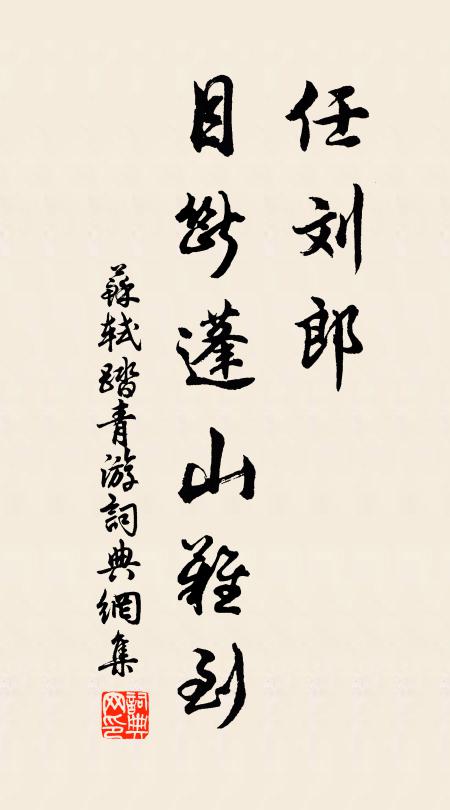 任刘郎
目斷蓬山難到
蘇軾踏青游詞典網集
詞典網印